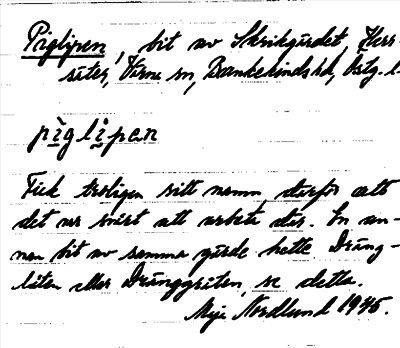 Piglipen, bit av Skrikgärdet, Herr-
säter, Värna sn, Bankekinds hd, Östg. l.
pìglìpen
Fick troligen sitt namn, därför att
det var svårt att arbeta där. En an-
nan bit av samma gärde hette Dräng-
låten eller Dränggråten, se detta.
Maja Nordlund 1945.